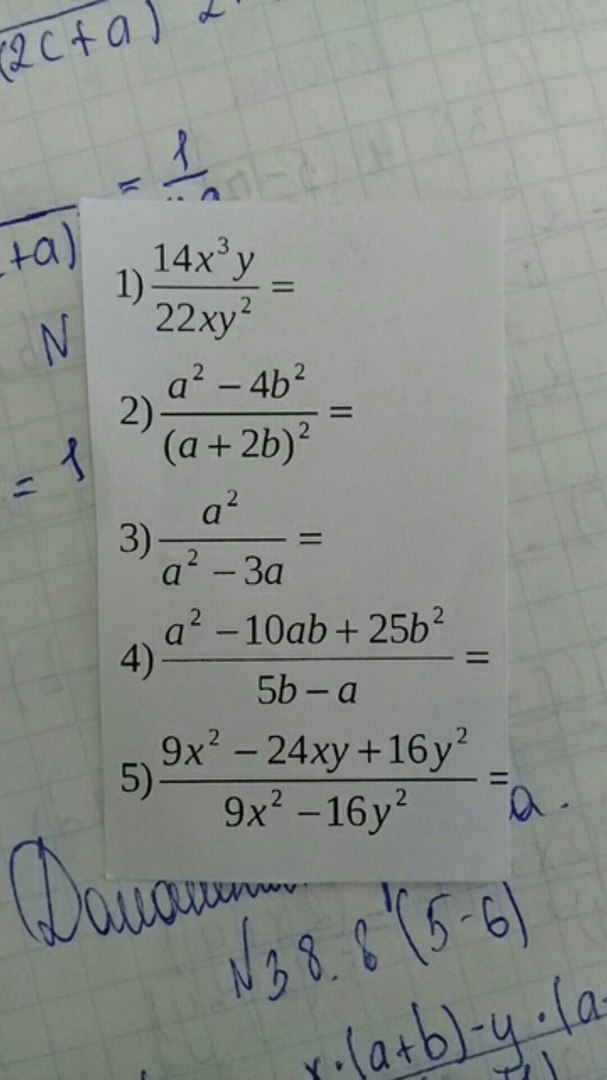 (2c+a) 2
= 1
+a)
N
= 1
1) 14x³y / 22xy² =
2) a² − 4b² / (a + 2b)² =
3) a² / a² − 3a =
4) a² − 10ab + 25b² / 5b − a =
5) 9x² − 24xy + 16y² / 9x² − 16y² =
a.
N38.8 (5-6)
x·(a+b)-y·(a